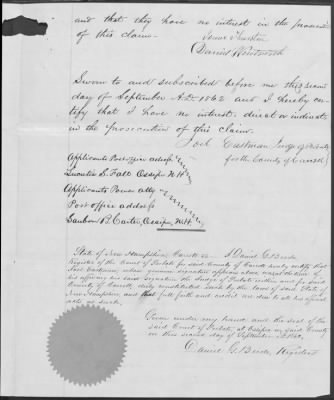 and that they have no interest in the prosecu
of this claim.
Daniel Wentworth
Sworn to and subscribed before me this second
day of September A.D. 1862 and I hereby cer
tify that I have no interest, direct or indirect
in the prosecution of this claim.
Joel Eastman Judge of Probate
for the County of Carroll
Applicants Post office address
S. Fall Ossipee N.H.
Applicants Power Atty
Post office address
Sanborn B. Carter, Ossipee, N.H.
State of New Hampshire, Carroll ss I Daniel G. Beede
Register of the Court of Probate for said County of Carroll hereby certify that
Joel Eastman, whose genuine signature appears above
his affixing his said signature, the Judge of Probate within and for said
County of Carroll, duly constituted such by the laws of said State of
New Hampshire, and that full faith and credit are due to all his official
acts as such.
Given under my hand and the seal of the
said Court of Probate, at Ossipee in said County
on this second day of September A.D. 1862.
Daniel G. Beede, Register